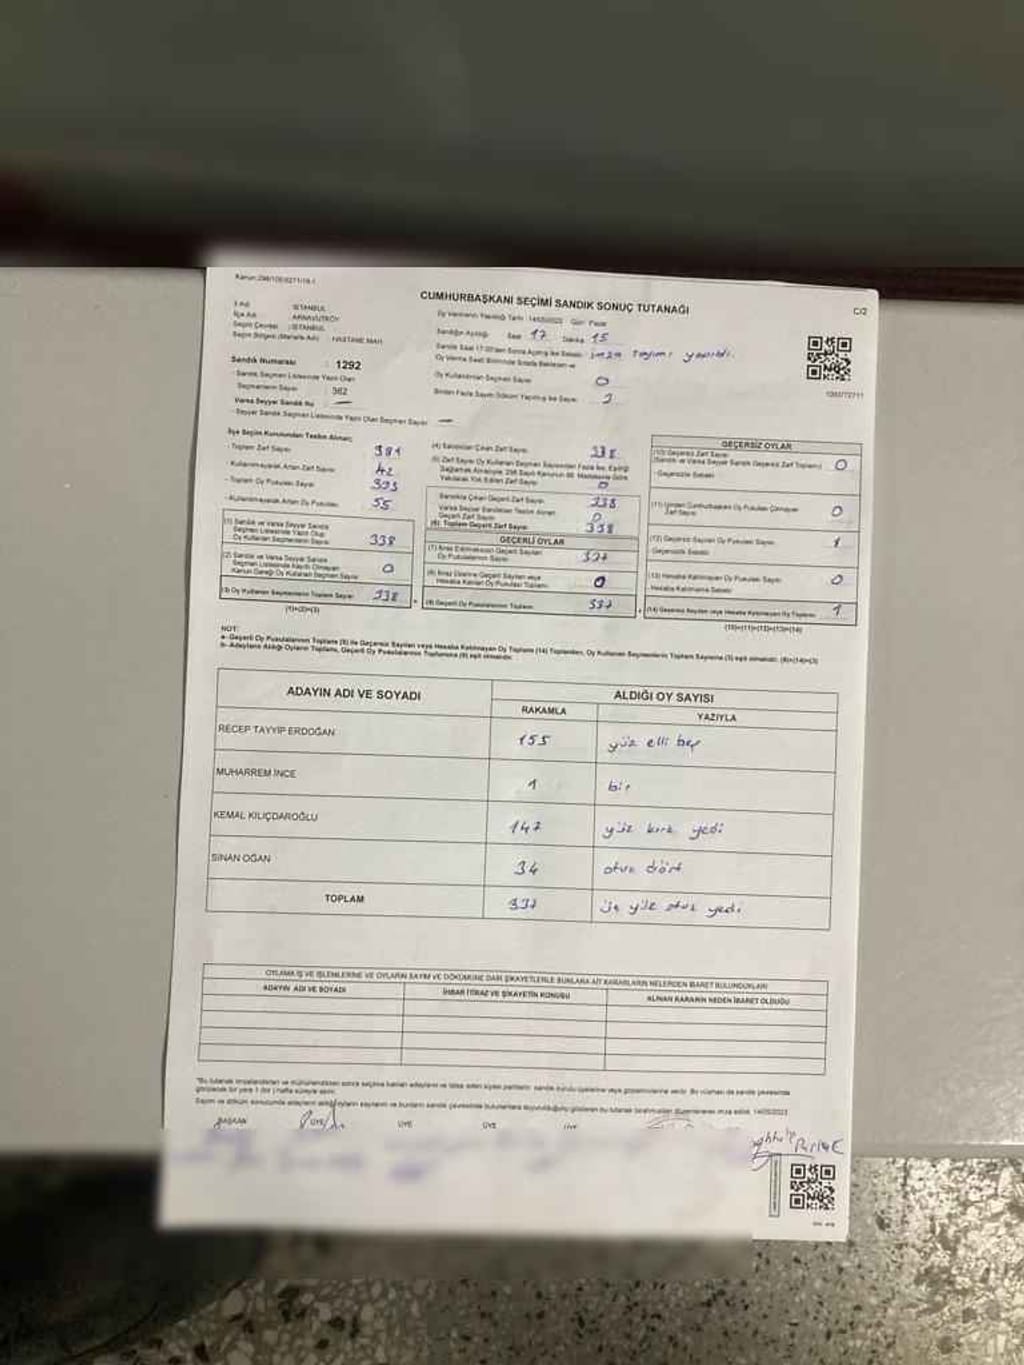 Kanun:298/105/6271/18-1
CUMHURBAŞKANI SEÇİMİ SANDIK SONUÇ TUTANAĞI
C/2
İl Adı : İSTANBUL
İlçe Adı : ARNAVUTKÖY
Seçim Çevresi : İSTANBUL
Seçim Bölgesi (Mahalle Adı) : HASTANE MAH.
Oy Vermenin Yapıldığı Tarih : 14/05/2023 Gün : Pazar
Sandığın Açıldığı Saat 17 Dakika 15
Sandık Saat 17:00'den Sonra Açılmış İse Sebebi : imza sayımı yapıldı.
Oy Kullandırılan Seçmen Sayısı 0
Birden Fazla Sayım Döküm Yapılmış İse Sayısı
Sandık Numarası : 1292
- Sandık Seçmen Listesinde Yazılı Olan
Seçmenlerin Sayısı : 382
Varsa Seyyar Sandık No —
- Seyyar Sandık Seçmen Listesinde Yazılı Olan Seçmen Sayısı —
İlçe Seçim Kurulundan Teslim Alınan;
- Toplam Zarf Sayısı
- Kullanılmayarak Artan Zarf Sayısı 42
- Toplam Oy Pusulası Sayısı 393
- Kullanılmayarak Artan Oy Pusulası 55
(1) Sandık ve Varsa Seyyar Sandık
Seçmen Listesinde Yazılı Olup
Oy Kullanan Seçmenlerin Sayısı 338
(2) Sandık ve Varsa Seyyar Sandık
Seçmen Listesinde Kayıtlı Olmayan
Kanun Gereği Oy Kullanan Seçmen Sayısı 0
(3) Oy Kullanan Seçmenlerin Toplam Sayısı 338
(1)+(2)=(3)
(4) Sandıktan Çıkan Zarf Sayısı 338
(5) Zarf Sayısı Oy Kullanan Seçmen Sayısından Fazla İse, Eşitliği
Sağlamak Amacıyla; 298 Sayılı Kanunun 98. Maddesine Göre
Yakılarak Yok Edilen Zarf Sayısı 0
Sandıkta Çıkan Geçerli Zarf Sayısı 338
Varsa Seyyar Sandıktan Teslim Alınan
Geçerli Zarf Sayısı 0
(6) Toplam Geçerli Zarf Sayısı 338
GEÇERLİ OYLAR
(7) İtiraz Edilmeksizin Geçerli Sayılan
Oy Pusulalarının Sayısı 337
(8) İtiraz Üzerine Geçerli Sayılan veya
Hesaba Katılan Oy Pusulası Toplamı 0
(9) Geçerli Oy Pusulalarının Toplamı 337
GEÇERSİZ OYLAR
(10) Geçersiz Zarf Sayısı
(Sandık ve Varsa Seyyar Sandık Geçersiz Zarf Toplamı) 0
- Geçersizlik Sebebi
(11) İçinden Cumhurbaşkanı Oy Pusulası Çıkmayan
Zarf Sayısı 0
(12) Geçersiz Sayılan Oy Pusulası Sayısı 1
- Geçersizlik Sebebi
(13) Hesaba Katılmayan Oy Pusulası Sayısı 0
- Hesaba Katılmama Sebebi
(14) Geçersiz Sayılan veya Hesaba Katılmayan Oy Toplamı 1
(10)+(11)+(12)+(13)=(14)
NOT:
a- Geçerli Oy Pusulalarının Toplamı (9) ile Geçersiz Sayılan veya Hesaba Katılmayan Oy Toplamı (14) Toplamları, Oy Kullanan Seçmenlerin Toplam Sayısına (3) eşit olmalıdır. (9)+(14)=(3)
b- Adayların Aldığı Oyların Toplamı, Geçerli Oy Pusulalarının Toplamına (9) eşit olmalıdır.
ADAYIN ADI VE SOYADI ALDIĞI OY SAYISI
RAKAMLA YAZIYLA
RECEP TAYYİP ERDOĞAN 155 yüz elli beş
MUHARREM İNCE 1 bir
KEMAL KILIÇDAROĞLU 147 yüz kırk yedi
SİNAN OĞAN 34 otuz dört
TOPLAM 337 üç yüz otuz yedi
OYLAMA İŞ VE İŞLEMLERİNE VE OYLARIN SAYIM VE DÖKÜMÜNE DAİR ŞİKAYETLERLE BUNLARA AİT KARARLARIN NELERDEN İBARET BULUNDUKLARI
ADAYIN ADI VE SOYADI İHBAR İTİRAZ VE ŞİKAYETİN KONUSU ALINAN KARARIN NEDEN İBARET OLDUĞU
BAŞKAN ÜYE ÜYE ÜYE ÜYE